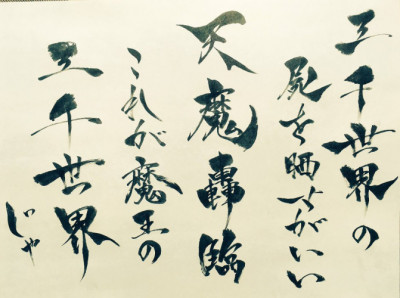 三千世界の
屍を晒すがいい
天魔轟臨
これが魔王の
三千世界
じゃ